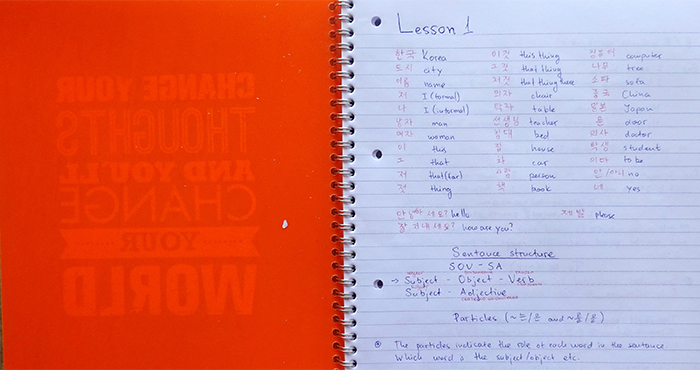 CHANGE YOUR
THOUGHTS
AND YOU'LL
CHANGE
YOUR
WORLD
Lesson 1
한국 Korea 이것 this thing 컴퓨터 computer
도시 city 그것 that thing 나무 tree
이름 name 저것 that thing there 소파 sofa
저 I (formal) 의자 chair 중국 China
나 I (informal) 탁자 table 일본 Japan
남자 man 선생님 teacher 문 door
여자 woman 침대 bed 의사 doctor
이 this 집 house 학생 student
그 that 차 car 이다 to be
저 that (far) 사람 person 안/아니 no
것 thing 책 book 네 yes
안녕하세요? hello 제발 please
잘 지내세요? how are you?
Sentence structure
SOV - SA
→ Subject - Object - Verb
Subject - Adjective
Particles (~는/은 and ~를/을)
The particles indicate the role of each word in the sentence
Which word is the subject/object etc.